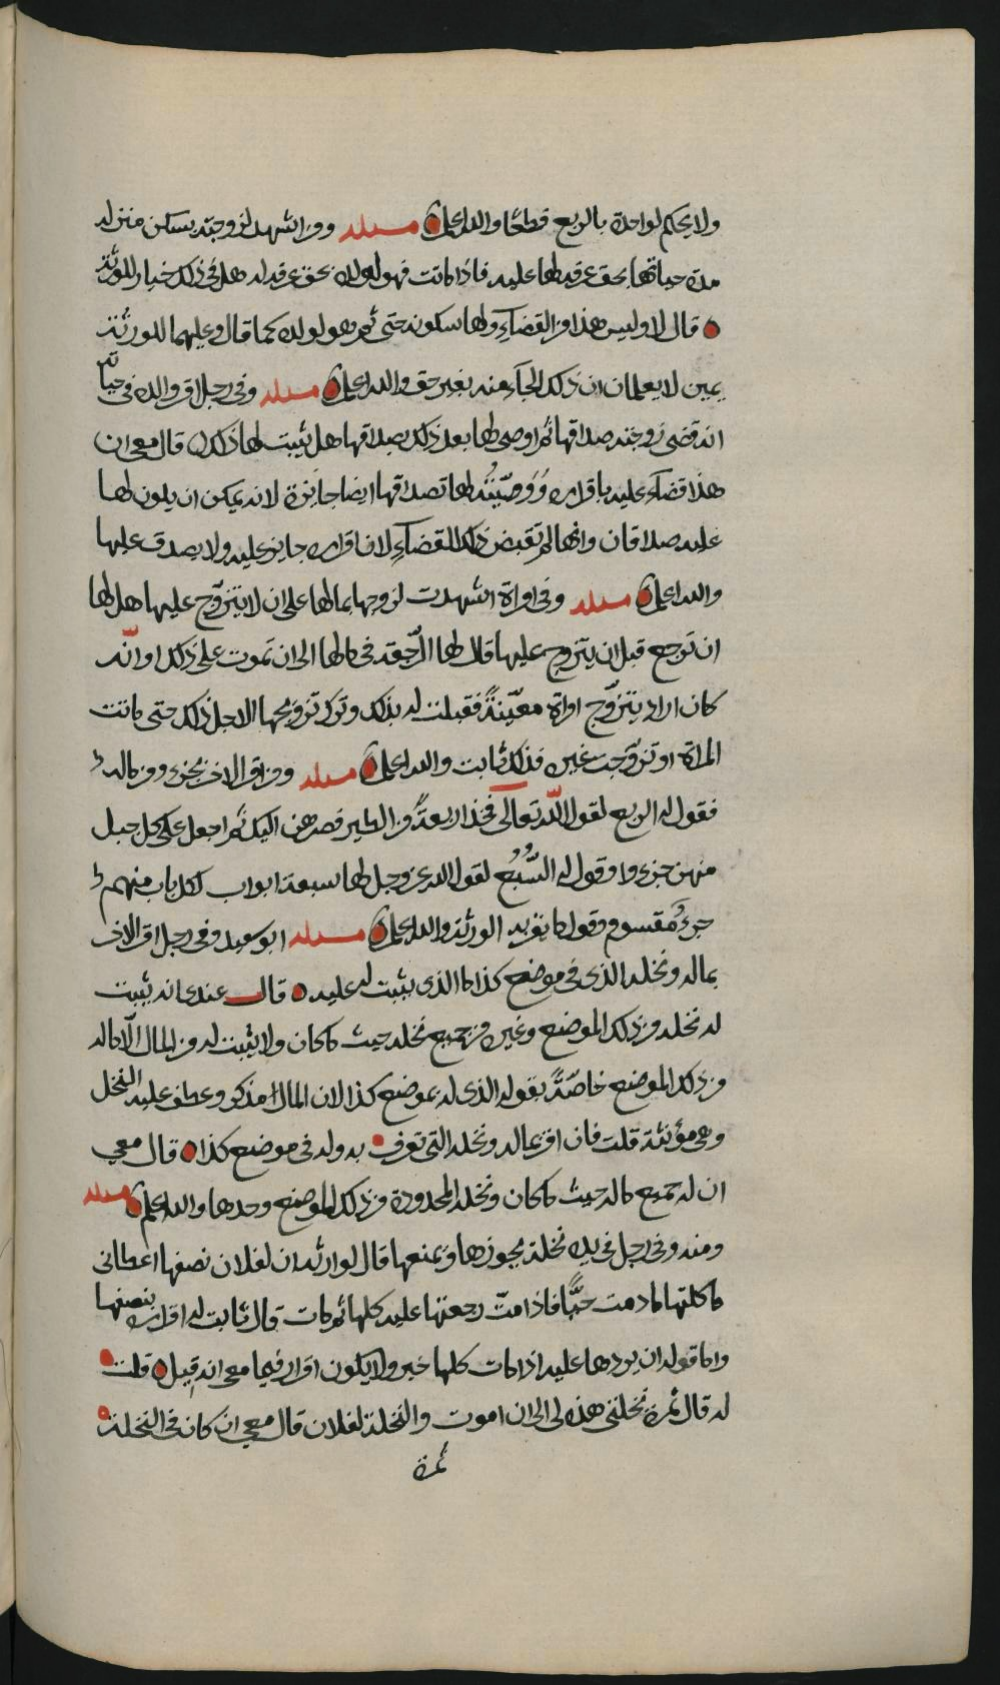 ولا يحكم لواحدة بالربع قطعا والله اعلم مسئلة ومن اشهد لزوجته بسكن منزله
مدة حياتها بحق عرفه لها عليه فاذا ماتت فهو لولده بحق عرفه له هل في ذلك خيار للورثة
قال لا وليس هذا من القضاء ولها سكونه حتى ثم هو لولده كما قال وعليهما للورثة
يمين لا يعلمان ان ذلك الجاء منه بغير حق والله اعلم مسئلة وفي رجل اقر والده في حياته
انه قضى زوجته صداقها ثم اوصى لها بعد ذلك بصداقها هل يثبت لها ذلك قال معي ان
هذا قضاء عليه باقراره ووصيته لها بصداقها ايضا جائزة لانه يمكن ان يكون لها
عليه صداقان وانها لم تقبض ذلك القضاء لان اقراره جايز عليه ولا يصدق عليها
والله اعلم مسئلة وفي امراة اشهدت لزوجها بمالها على ان لا يتزوج عليها هل لها
ان ترجع قبل ان يتزوج عليها قال لها الرجعة في مالها الى ان تموت على ذلك او انه
كان اراد يتزوج امراة معينة فقبلت له بذلك وترك تزويجها لاجل ذلك حتى ماتت
المراة او تزوجت غيره فذلك ثابت والله اعلم مسئلة ومن اقر لاخر بجزء من ماله
فقول له الربع لقول الله تعالى فخذ اربعة من الطير فصرهن اليك ثم اجعل على كل جبل
منهن جزءا وقول له السبع لقول الله عز وجل لها سبعة ابواب لكل باب منهم
جزء مقسوم وقول ما يريد الورثة والله اعلم مسئلة ابو سعيد وفي رجل اقر لاخر
بماله ونخله الذي في موضع كذا ما الذي يثبت له عليه قال عندي انه يثبت
له نخله من ذلك الموضع وغيره من جميع نخله حيث ما كان ولا يثبت له من المال الا ماله
من ذلك الموضع خاصة بقوله الذي له بموضع كذا لان المال مذكر وعطف عليه النخل
وهي مؤنثة قلت فان اقر بماله ونخله التي تعرف به وله في موضع كذا قال معي
ان له جميع ماله حيث ما كان ونخله المحدودة من ذلك الموضع وحدها والله اعلم مسئلة
ومنه وفي رجل في يده نخلة يحوزها ويمنعها قال لوارثه ان لفلان نصفها اعطاني
ماكلتها ما دمت حيا فاذا مت رجعتها عليه كلها ثم مات قال ثابت له اقراره بنصفها
واما قوله ان يردها عليه اذا مات كلها خبر ولا يكون اقرار فيما معي انه قيل قلت
له قال ثمرة نخلتي هذه لي الى ان اموت والنخلة لفلان قال معي ان كان في النخلة
ثمرة